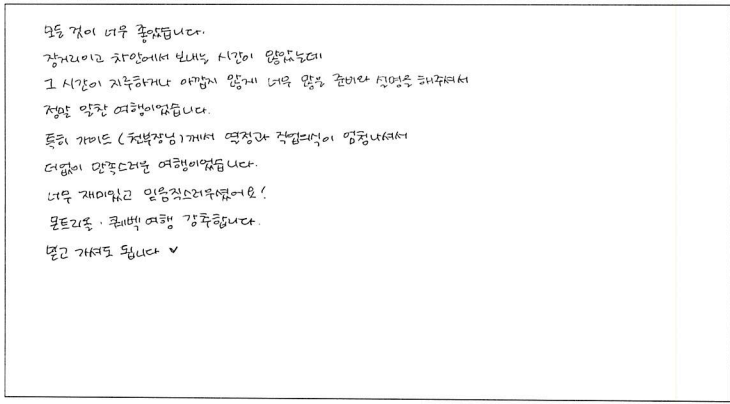 모든 것이 너무 좋았습니다.
장거리이고 차안에서 보내는 시간이 많았는데
그 시간이 지루하거나 아깝지 않게 너무 많은 준비와 설명을 해주셔서
정말 알찬 여행이었습니다.
특히 가이드 (천부장님)께서 열정과 직업의식이 엄청나셔서
더없이 만족스러운 여행이었습니다.
너무 재미있고 믿음직스러우셨어요!
몬트리올·퀘벡 여행 강추합니다.
믿고 가셔도 됩니다 v